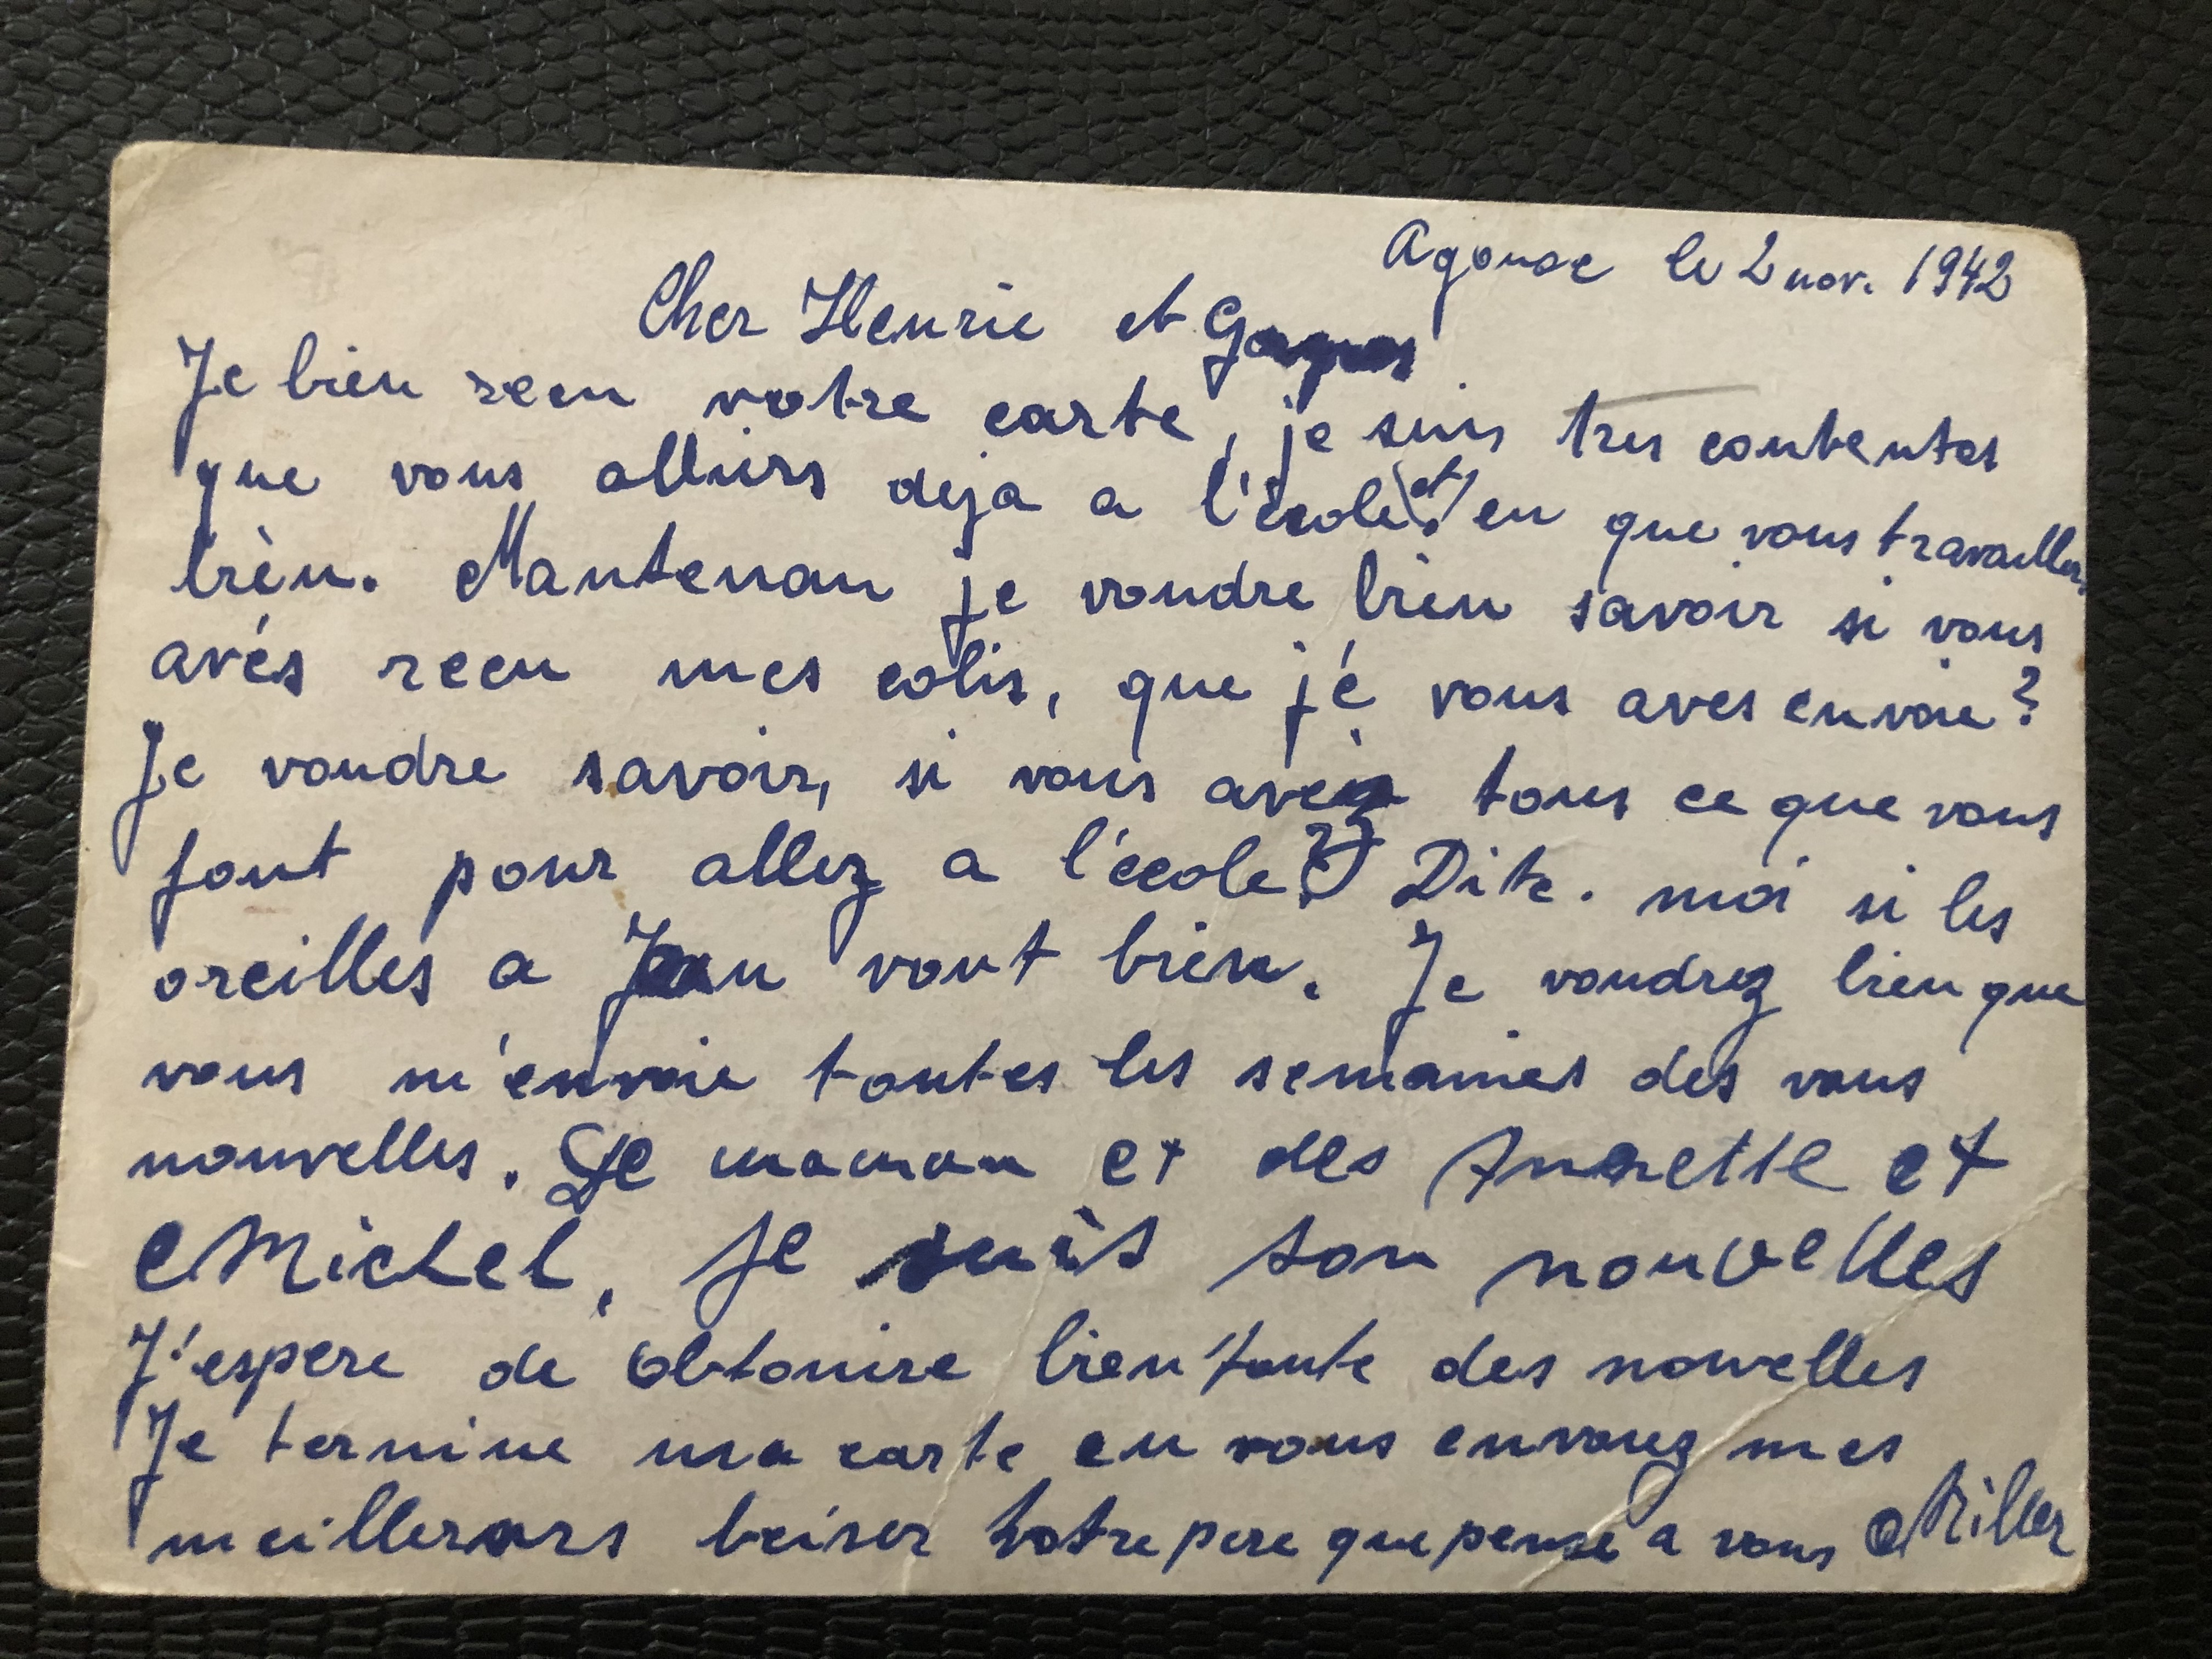 Agouse le 2 nov. 1942
Cher Henrie et
Je bien recu votre carte, je suis tres contentes
que vous alliers deja a l'école et en que vous travailler
bien. Mantenan je voudre bien savoir si vous
avés recu mes colis, que jé vous aves envoie?
Je voudre savoir, si vous avez tous ce que vous
font pour allez a l'école? Dite. moi si les
oreilles a Jean vont bien. Je voudrez bien que
vous m'envoie toutes les semaines des vous
nouvelles. De maman et des Annette et
Michel, je suis son nouvelles
J'espere de obtonire bientoute des nouvelles
Je termine ma carte en vous envoiez mes
meillerors beiser Votre pere que pense a vous Miller